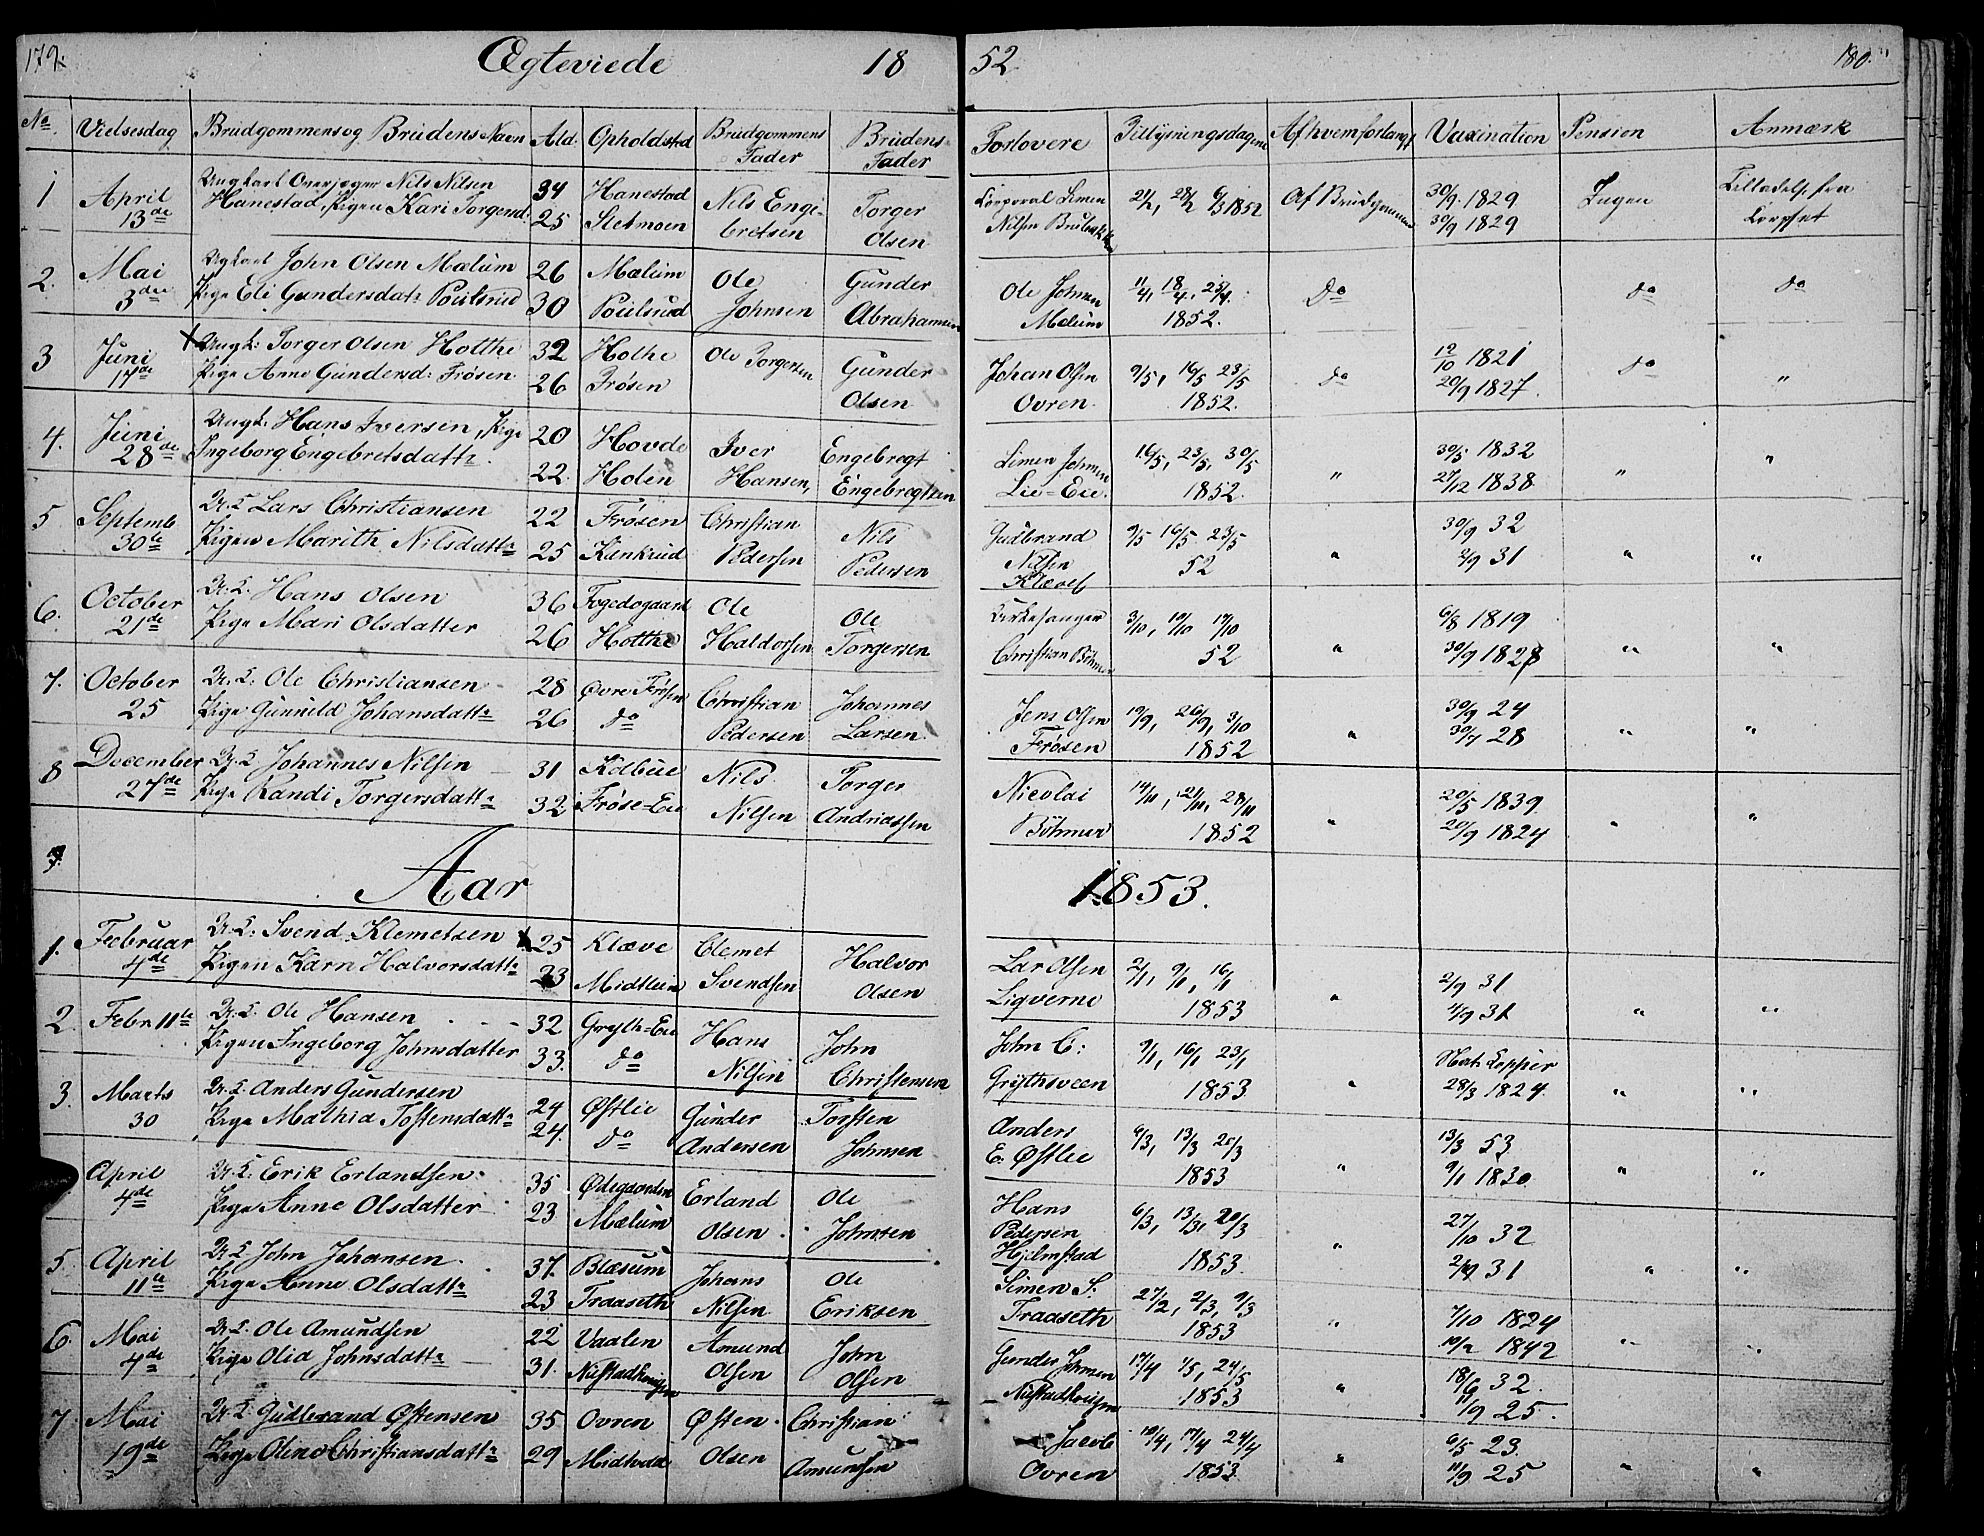 179. Ægteviede 18 52 180.
No. Vielsesdag Brudgommens og Brudens Navn Ald: Opholdsted Brudgommens Fader Brudens Fader Forlovere Tillysningsdagene Af hvem forlangt Vaxination Pension Anmærk
1 April 13de Ungkarl Overjæger Nils Nilsen 34 Hanestad Nils Engebretsen Torger Olsen Corporal Simen Nilsen 21/2, 28/2 6/3 1852 Af Brudgommen 30/9 1829 Ingen Tilladelse fra
Hanestad, Pigen Kari Torgersd. 25 Sletmoen 30/9 1829 Corpset
2. Mai 3die Ugkarl John Olsen Mælum 26 Mælum Ole Johnsen Gunder Abrahamsen Ole Johnsen Mælum 11/4, 18/4, 25/4. 1852. Do Do Do
Pige Eli Gundersdatr Poulsrud 30 Poulsrud
3 Juni 17de Ungk: Torger Olsen Hotthe 32 Holhe Ole Torgersen Gunder Olsen Johan Olsen Ovren 9/5, 16/5 23/5 1852. Do 12/10 1821 Do "
Pige Anne Gundersd: Frøsen 26 Frøsen 20/9 1827.
4. Juni 28de Ungk: Hans Iversen, Pige 20 Hovde Iver Hansen, Engebregt Engebregtsen Simen Johnsen Lie=Eie. 16/5, 23/5, 30/5 1852. " 30/5 1832 " "
Ingeborg Engebretsdattr. 22. Holen 27/12 1838
5 Septemb 30te U.K. Lars Christiansen 22 Frøsen Christian Pedersen Nils Pedersen Gudbrand Nilsen Klævel 9/5 16/5 23/5 52 " 30/9 32 " "
Pigen Marith Nilsdattr 25 Kankrud 2/9 31
6. October 21de U.K. Hans Olsen 36 Fogedogaard Ole Haldorsen Ole Torgersen Kirkesanger Christian Bøhmer 3/10, 10/10 17/10 52 " 6/8 1819 " "
Pige Mari Olsdatter 26 Hotthe 30/9 1828
7. October 25 U.K. Ole Christiansen 28 Øvre Frøsen Christian Pedersen Johannes Larsen. Jens Olsen Frøsen 19/9, 26/9, 3/10 1852 " 30/9 24 " "
Pige Gunnild Johansdattr 26 Do 30/7 28
8 December 27de U.K. Johannes Nilsen 31 Kolbue Nils Nilsen Torger Andriassen Nicolai Bøhmer 14/11, 21/11, 28/11 1852 " 20/5 1839. " "
Pige Randi Torgersdattr 32. Frøse=Eie 20/9 1824
Aar 1853.
1. Februar 4de U.K: Svend Klemetsen 25 Klæve Clemet Svendsen Halvor Olsen Lar Olsen Ligverne 2/1, 9/1, 16/1 1853 " 2/9 31 " "
Pigen Karn Halvorsdattr 23 Midtlien 4/9 31
2. Febr. 11te U.K. Ole Hansen 32 Gryth=Eie Hans Nilsen John Christensen John C: Grythsveen 9/1, 16/1 23/1 1853 " Havt Kopper " "
Pigen Ingeborg Johnsdatter 33. Do 28/3 1824.
3. Marts 30 U.K. Anders Gundersen 24 Østlie Gunder Andersen Torsten Johnsen Anders E. Østlie 6/3, 13/3 20/3 1853 " 13/3 53 " "
Pige Mathia Tostensdattr 24. Do 9/1 1830
April 4de U.K: Erik Erlandsen 35 Ødegaarden Erland Olsen. Ole Johnsen Hans Pedersen Hjelmstad 6/3, 13/3, 20/3 1853. " 27/10 32
Pige Anne Olsdatter 23 Mælum 2/9 31 " "
5. April 11te U.K John Johansen. 37. Blæsum Johans Nilsen Ole Eriksen Simen S. Traaseth 27/2, 2/3, 9/3 1853 " 7/10 1824 " "
Pige Anne Olsdattr 23 Traaseth 1842
6. Mai 4de U.K. Ole Amundsen 22 Vaalen Amund Olsen John Olsen Gunder Johnsen 17/4 1/5, 24/5 1853 " 18/9 32.
Pige Olia Johnsdattr 31. 11/9 25.
7 Mai 19de U.K Gudbrand Østensen 35 Ovren Østen Olsen Christian Amundsen Jacob Ovren 10/4, 17/4 24/4 1853. " 6/5 23. " "
Pige Oline Christiansdattr 29 Midtvold 11/9 25